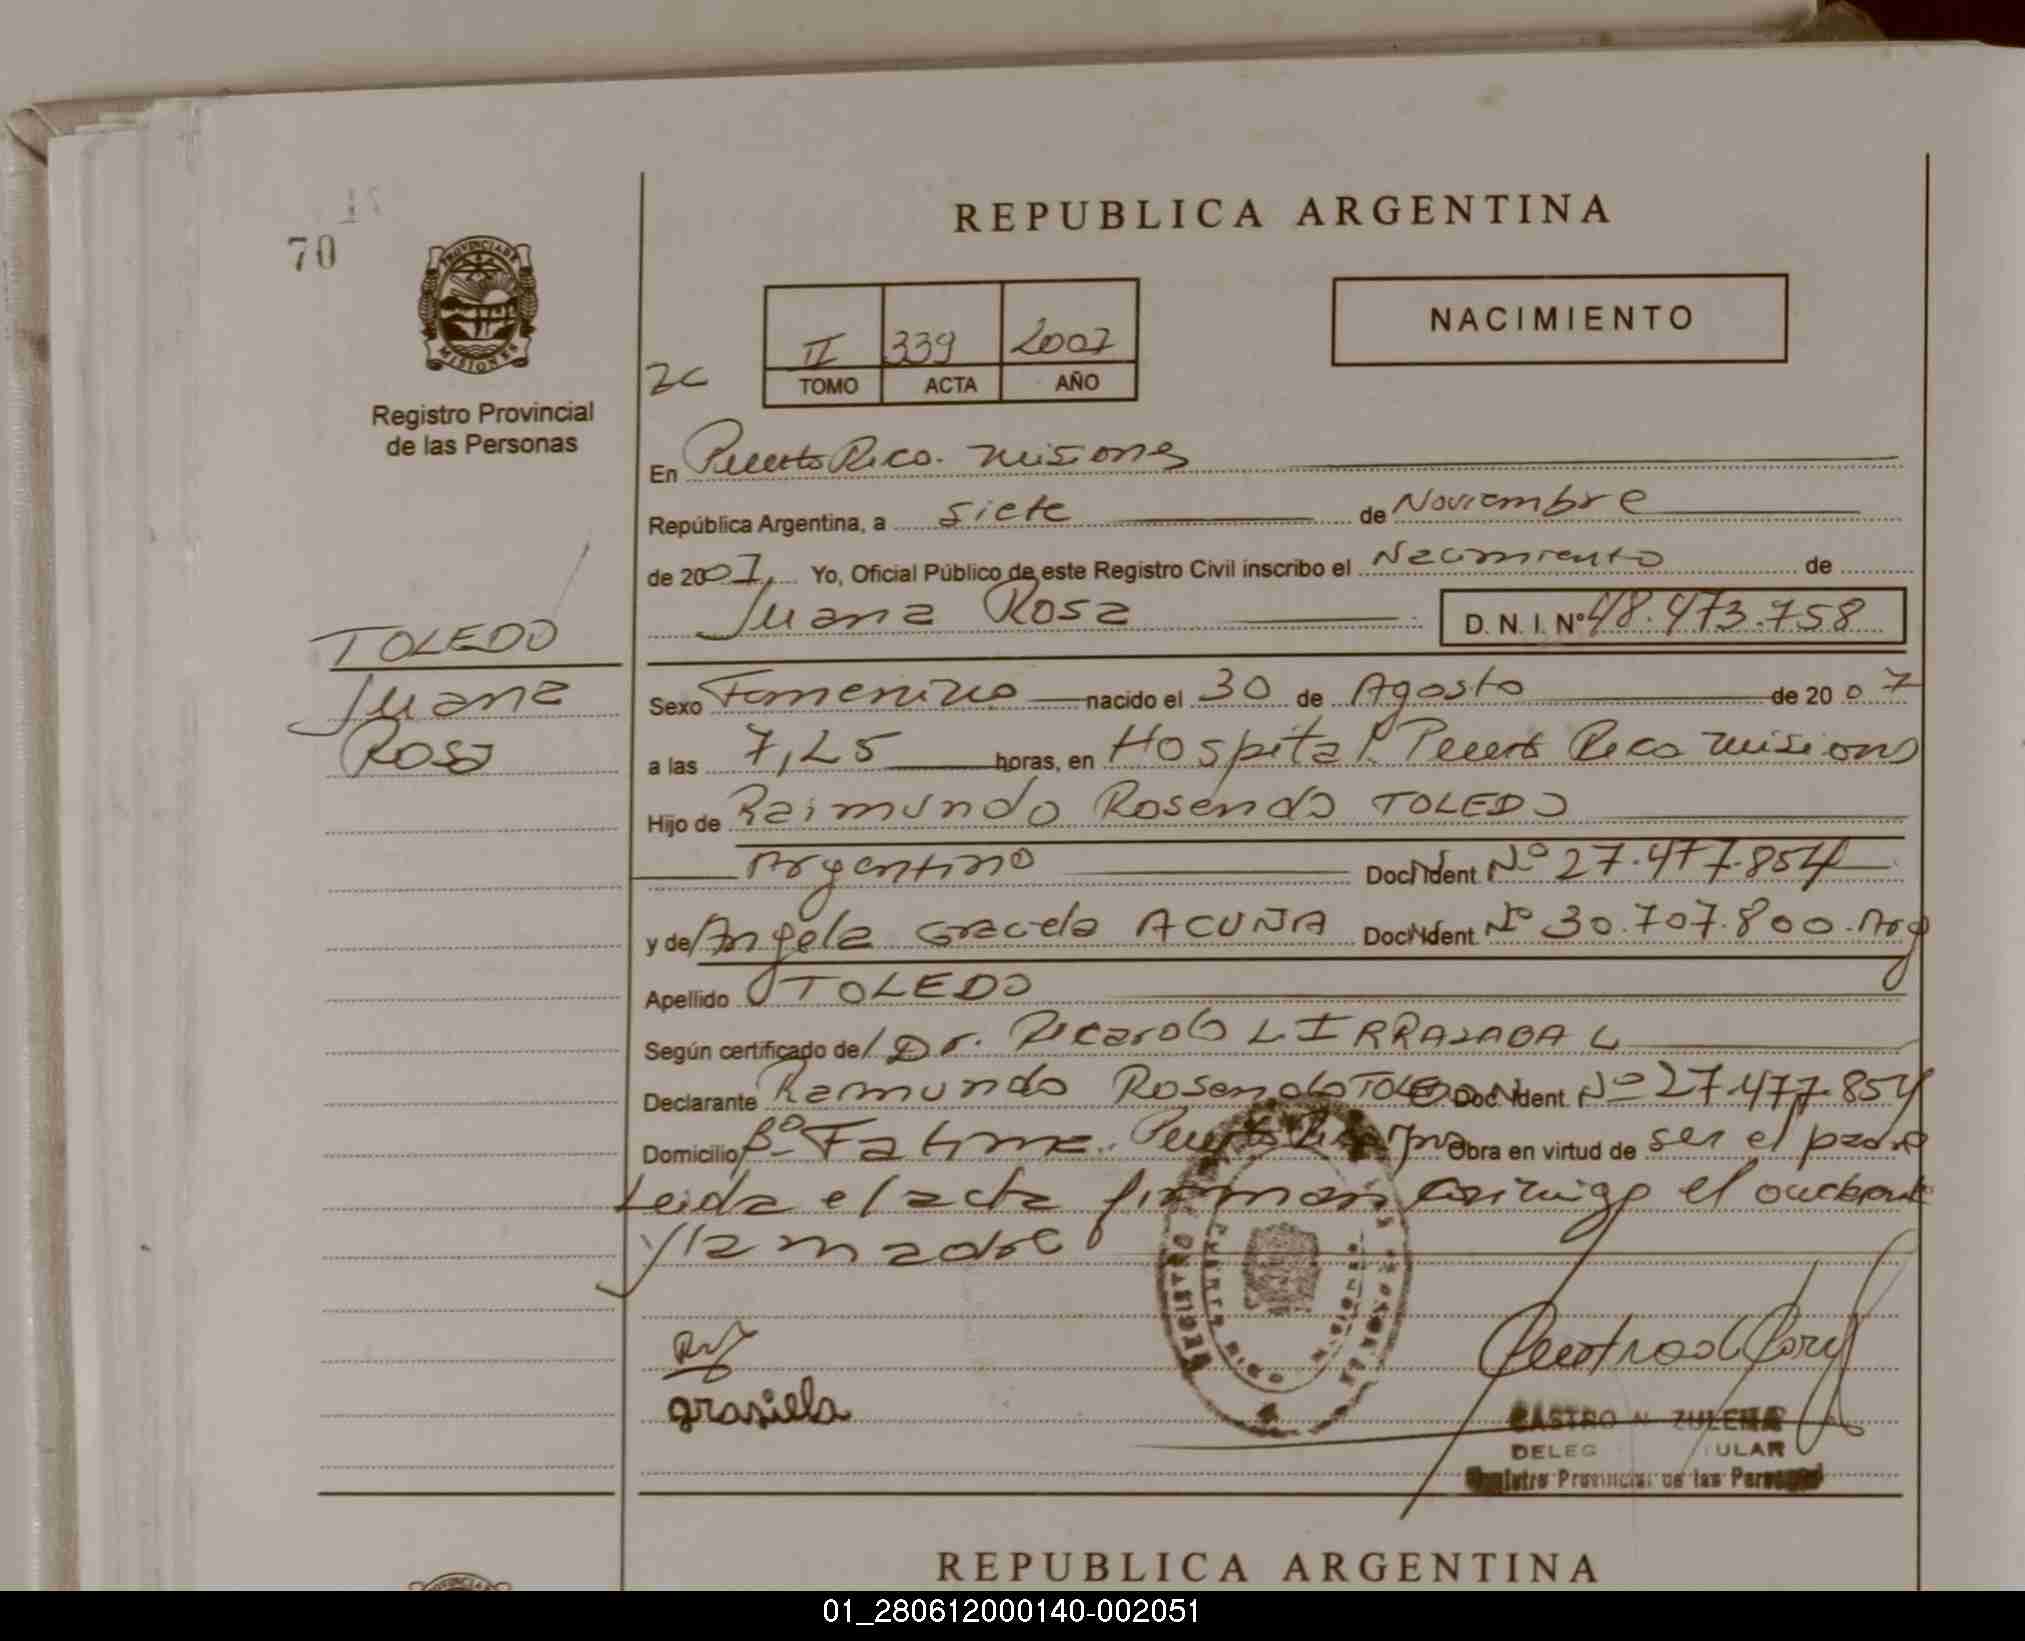 70
PROVINCIA DE
MISIONES
Registro Provincial
de las Personas
REPUBLICA ARGENTINA
NACIMIENTO
II 339 2007
TOMO ACTA AÑO
2c
En Puerto Rico. Misiones
República Argentina, a siete de Noviembre
de 2007, Yo, Oficial Público de este Registro Civil inscribo el Nacimiento de
Juana Rosa D. N. I. Nº 48.473.758
TOLEDO
Juana
Rosa
Sexo Femenino nacido el 30 de Agosto de 2007
a las 7,25 horas, en Hospital Puerto Rico Misiones
Hijo de Raimundo Rosendo TOLEDO
Argentino Doc. Ident. Nº 27.477.854
y de Angela Graciela ACUÑA Doc. Ident. Nº 30.707.800. Arg
Apellido TOLEDO
Según certificado de Dr. Ricardo LIRRAZABAL
Declarante Raimundo Rosendo TOLEDO Doc. Ident. Nº 27.477.854
Domicilio Bº Fatima. Puerto Rico Obra en virtud de ser el padre
Leida el acta firman conmigo el
y la madre
grasiela
REGISTRO
CASTRO N ZULEMA
DELEG TULAR
Registro Provincial de las Personas
REPUBLICA ARGENTINA
01_280612000140-002051